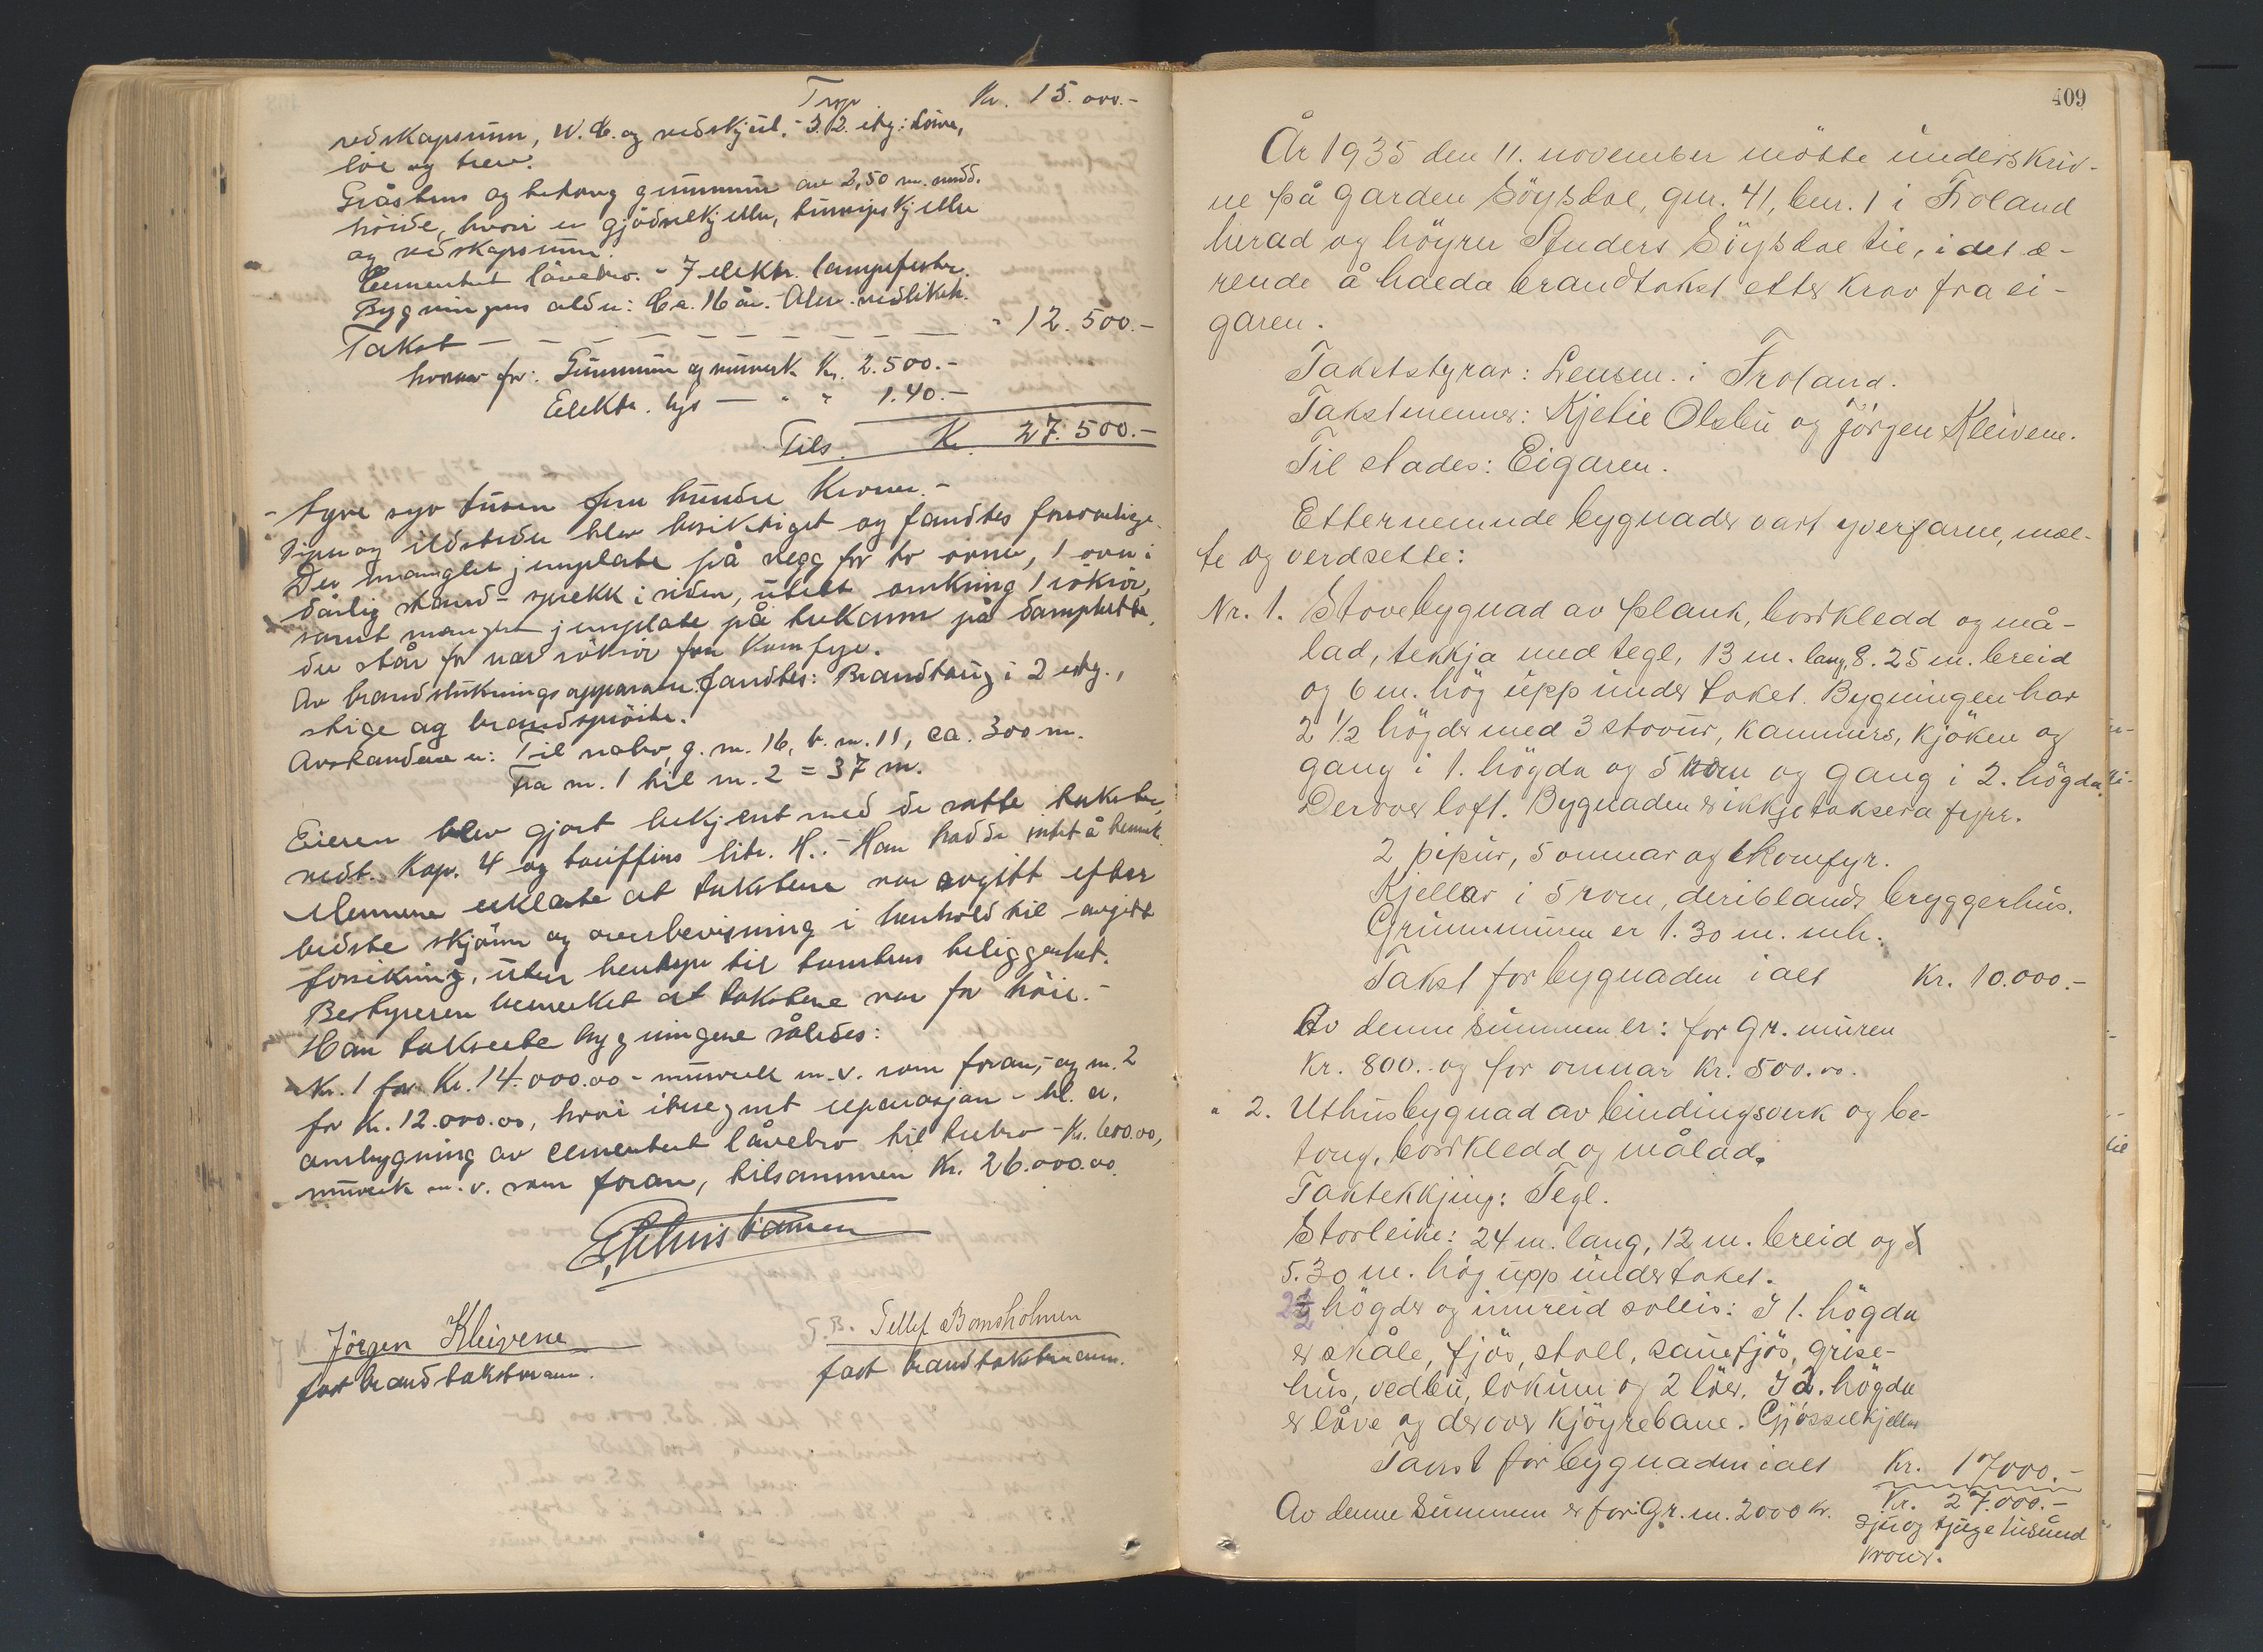 Trsp. Kr. 15.000.-
redskapsrum, W.C. og vedskjul. - I 2. etg: Låve,
löe og trev.
Gråstens og betong grunnmur av 2,50 m. midd.
höide, hvori er gjödselkjeller, turnipskjeller
og redskapsrum.
Cementert låvebro. - 7 elektr. lampefester.
Bygningens alder: Ca. 16 år. - Alm. vedlikeh.
Takst - - - - - - - - " 12.500.-
hvorav for: Grunnmur og murverk Kr. 2.500.-
Elektr. lys — " " 140.-
Tils. Kr. 27.500.-
- tyve syv tusen fem hundre Kroner. -
Piper og ildsteder blev besiktiget og fandtes forsvarlige.
Der mangler jernplate på vegg for to ovner, 1 ovn i
dårlig stand - sprekk i siden, utett omkring 1 rökrör,
samt mangler jernplate på trekarm på damphette,
der står for nær rökrör fra Komfyr.
Av brandsluknings apparater fandtes: Brandtaug i 2 etg.,
stige og brandspröite.
Avstandene er: Til nabo, g. nr. 16, b. nr. 11, ca. 300 m.
Fra nr. 1 til nr. 2 = 37 m.
Eieren blev gjort bekjent med de satte takster,
vedt. Kap. 4 og tariffens litr. H. - Han hadde intet å bemerk.
Mennene erklærte at takstene var avgitt efter
bedste skjönn og overbevisning i henhold til avgitt
forsikring, uten hensyn til tomtens beliggenhet.
Bestyreren bemerket at takstene var for höie. -
Han takserte bygningene således:
Nr. 1 for Kr. 14.000.00 - murverk m. v. som foran, - og nr. 2
for Kr. 12.000.00, hvori iberegnet reparasjon - bl. a.
ombygning av cementert låvebro til trebro - Kr. 600.00,
murverk m. v. som foran, tilsammen Kr. 26.000.00.
Christiansen
Jörgen Kleivene
fast brandtakstmann.
Tellef Bomsholmen
fast brandtakstmann.
409
År 1935 den 11. november mötte underskriv-
ne på garden Söysdal, gnr. 41, bnr. 1 i Froland
herad og höyrer Anders Söysdal til, i det æ-
rende å halda brandtakst etter krav fra ei-
garen.
Takststyrar: Lensm. i Froland.
Takstmenner: Kjetil Olsbu og Jörgen Kleivene.
Til stades: Eigaren.
Etternemnde bygnader vart yverfarne, mæl-
te og verdsette:
Nr. 1. Stovebygnad av plank, bordkledd og må-
lad, tekkja med tegl, 13 m. lang, 8.25 m. breid
og 6 m. hög upp under taket. Bygningen har
2 1/2 högder med 3 stovur, kammers, kjöken og
gang i 1. högda og 5 rom og gang i 2. högda.
Derover loft. Bygnaden er ikkje taksera fyrr.
2 pipur, 5 omnar og 1 komfyr.
Kjellar i 5 rom, deriblandt bryggerhus.
Grunnmuren er 1.30 m. mh.
Takst for bygnaden i alt Kr. 10.000.-
Av denne summen er: for gr. muren
Kr. 800.- og for omnar Kr. 500.00.
" 2. Uthusbygnad av bindingsverk og be-
tong, bordkledd og målad.
Taktekkjing: Tegl.
Storleike: 24 m. lang, 12 m. breid og
5.30 m. hög upp under taket.
2 1/2 högder og innreid solleis: I 1. högda
er skåle, fjös, stall, sauefjös, grise-
hus, vedbu, lokum og 2 löer. I 2. högda
er låve og derover kjöyrebane. Gjösselkjellar
Takst for bygnaden i alt Kr. 17000.-
Kr. 27.000.-
Av denne summen er for: Gr. m. 2000 kr.
sju og tjuge tusund
kroner.